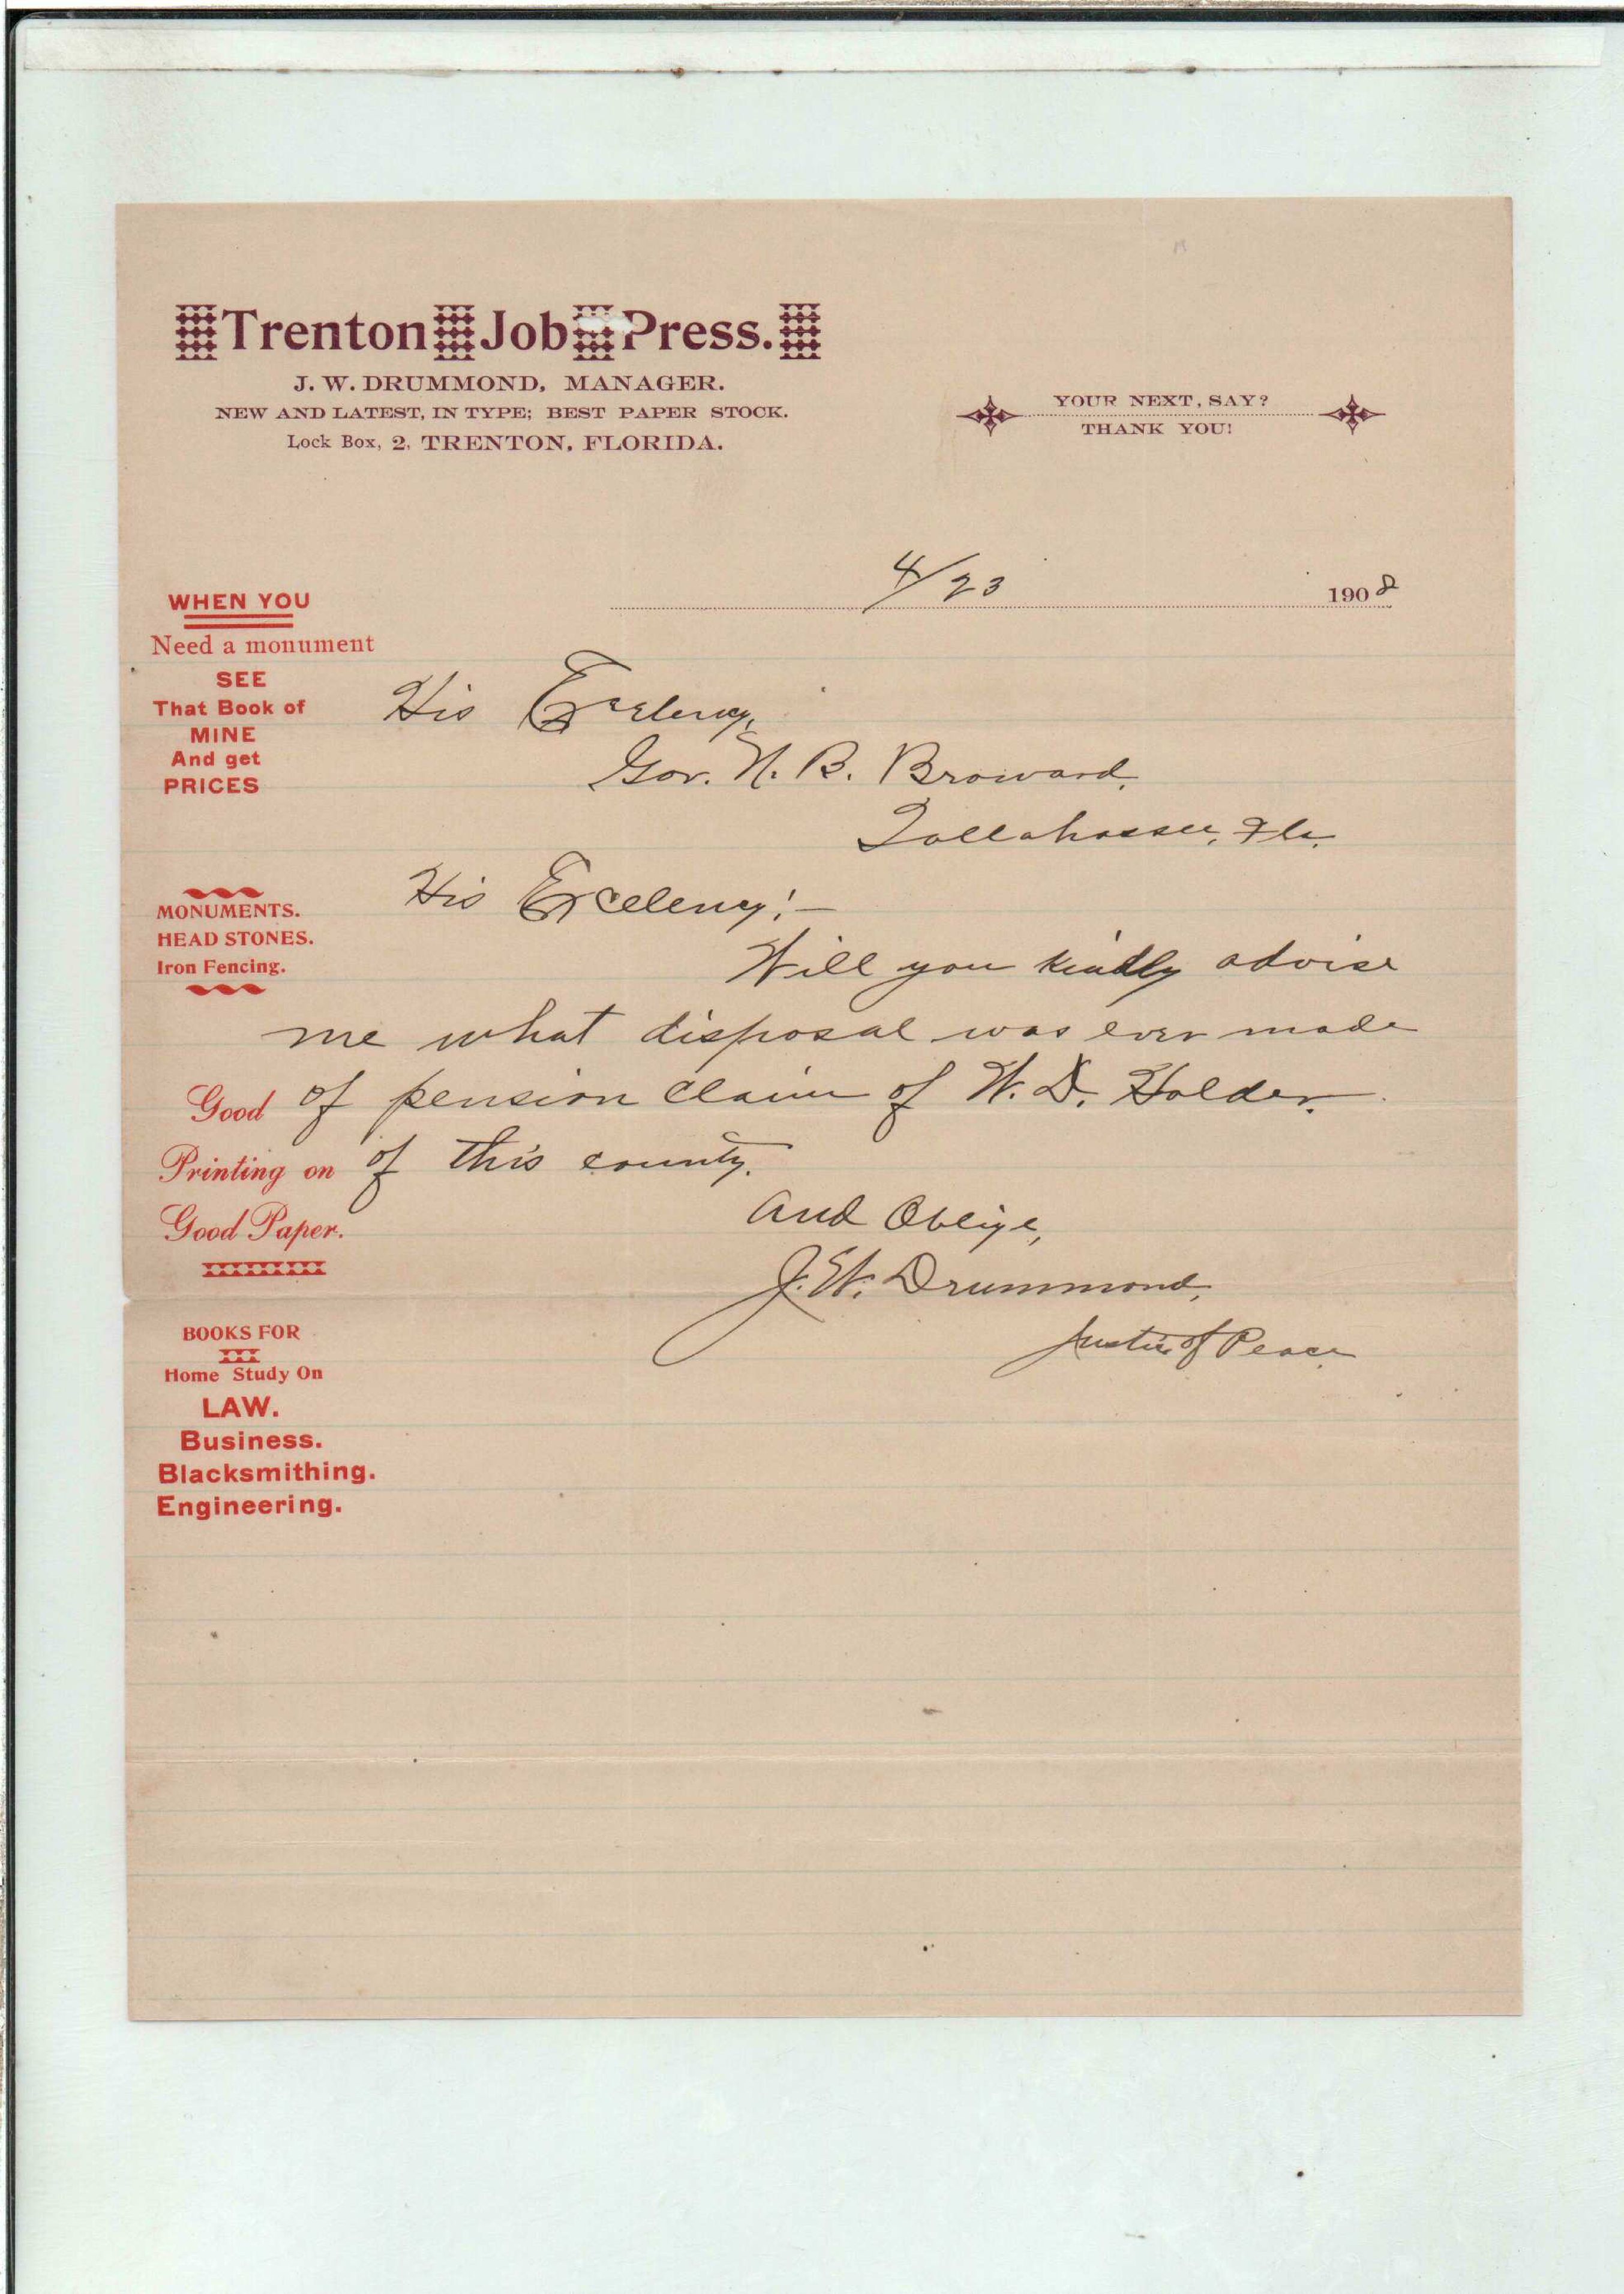 Trenton Job Press.
J. W. DRUMMOND, MANAGER.
NEW AND LATEST, IN TYPE; BEST PAPER STOCK.
Lock Box, 2, TRENTON, FLORIDA.
YOUR NEXT, SAY?
THANK YOU!
4/23 1908
WHEN YOU
Need a monument
SEE
That Book of
MINE
And get
PRICES
His Excelency,
Gov. N. B. Broward,
Tallahassee, Fla.
MONUMENTS.
HEAD STONES.
Iron Fencing.
His Excelency!—
Will you kindly advise
me what disposal was ever made
of pension claim of W. D. Holder,
of this county.
And Oblige,
J. W. Drummond,
Justice of Peace
Good
Printing on
Good Paper.
BOOKS FOR
Home Study On
LAW.
Business.
Blacksmithing.
Engineering.